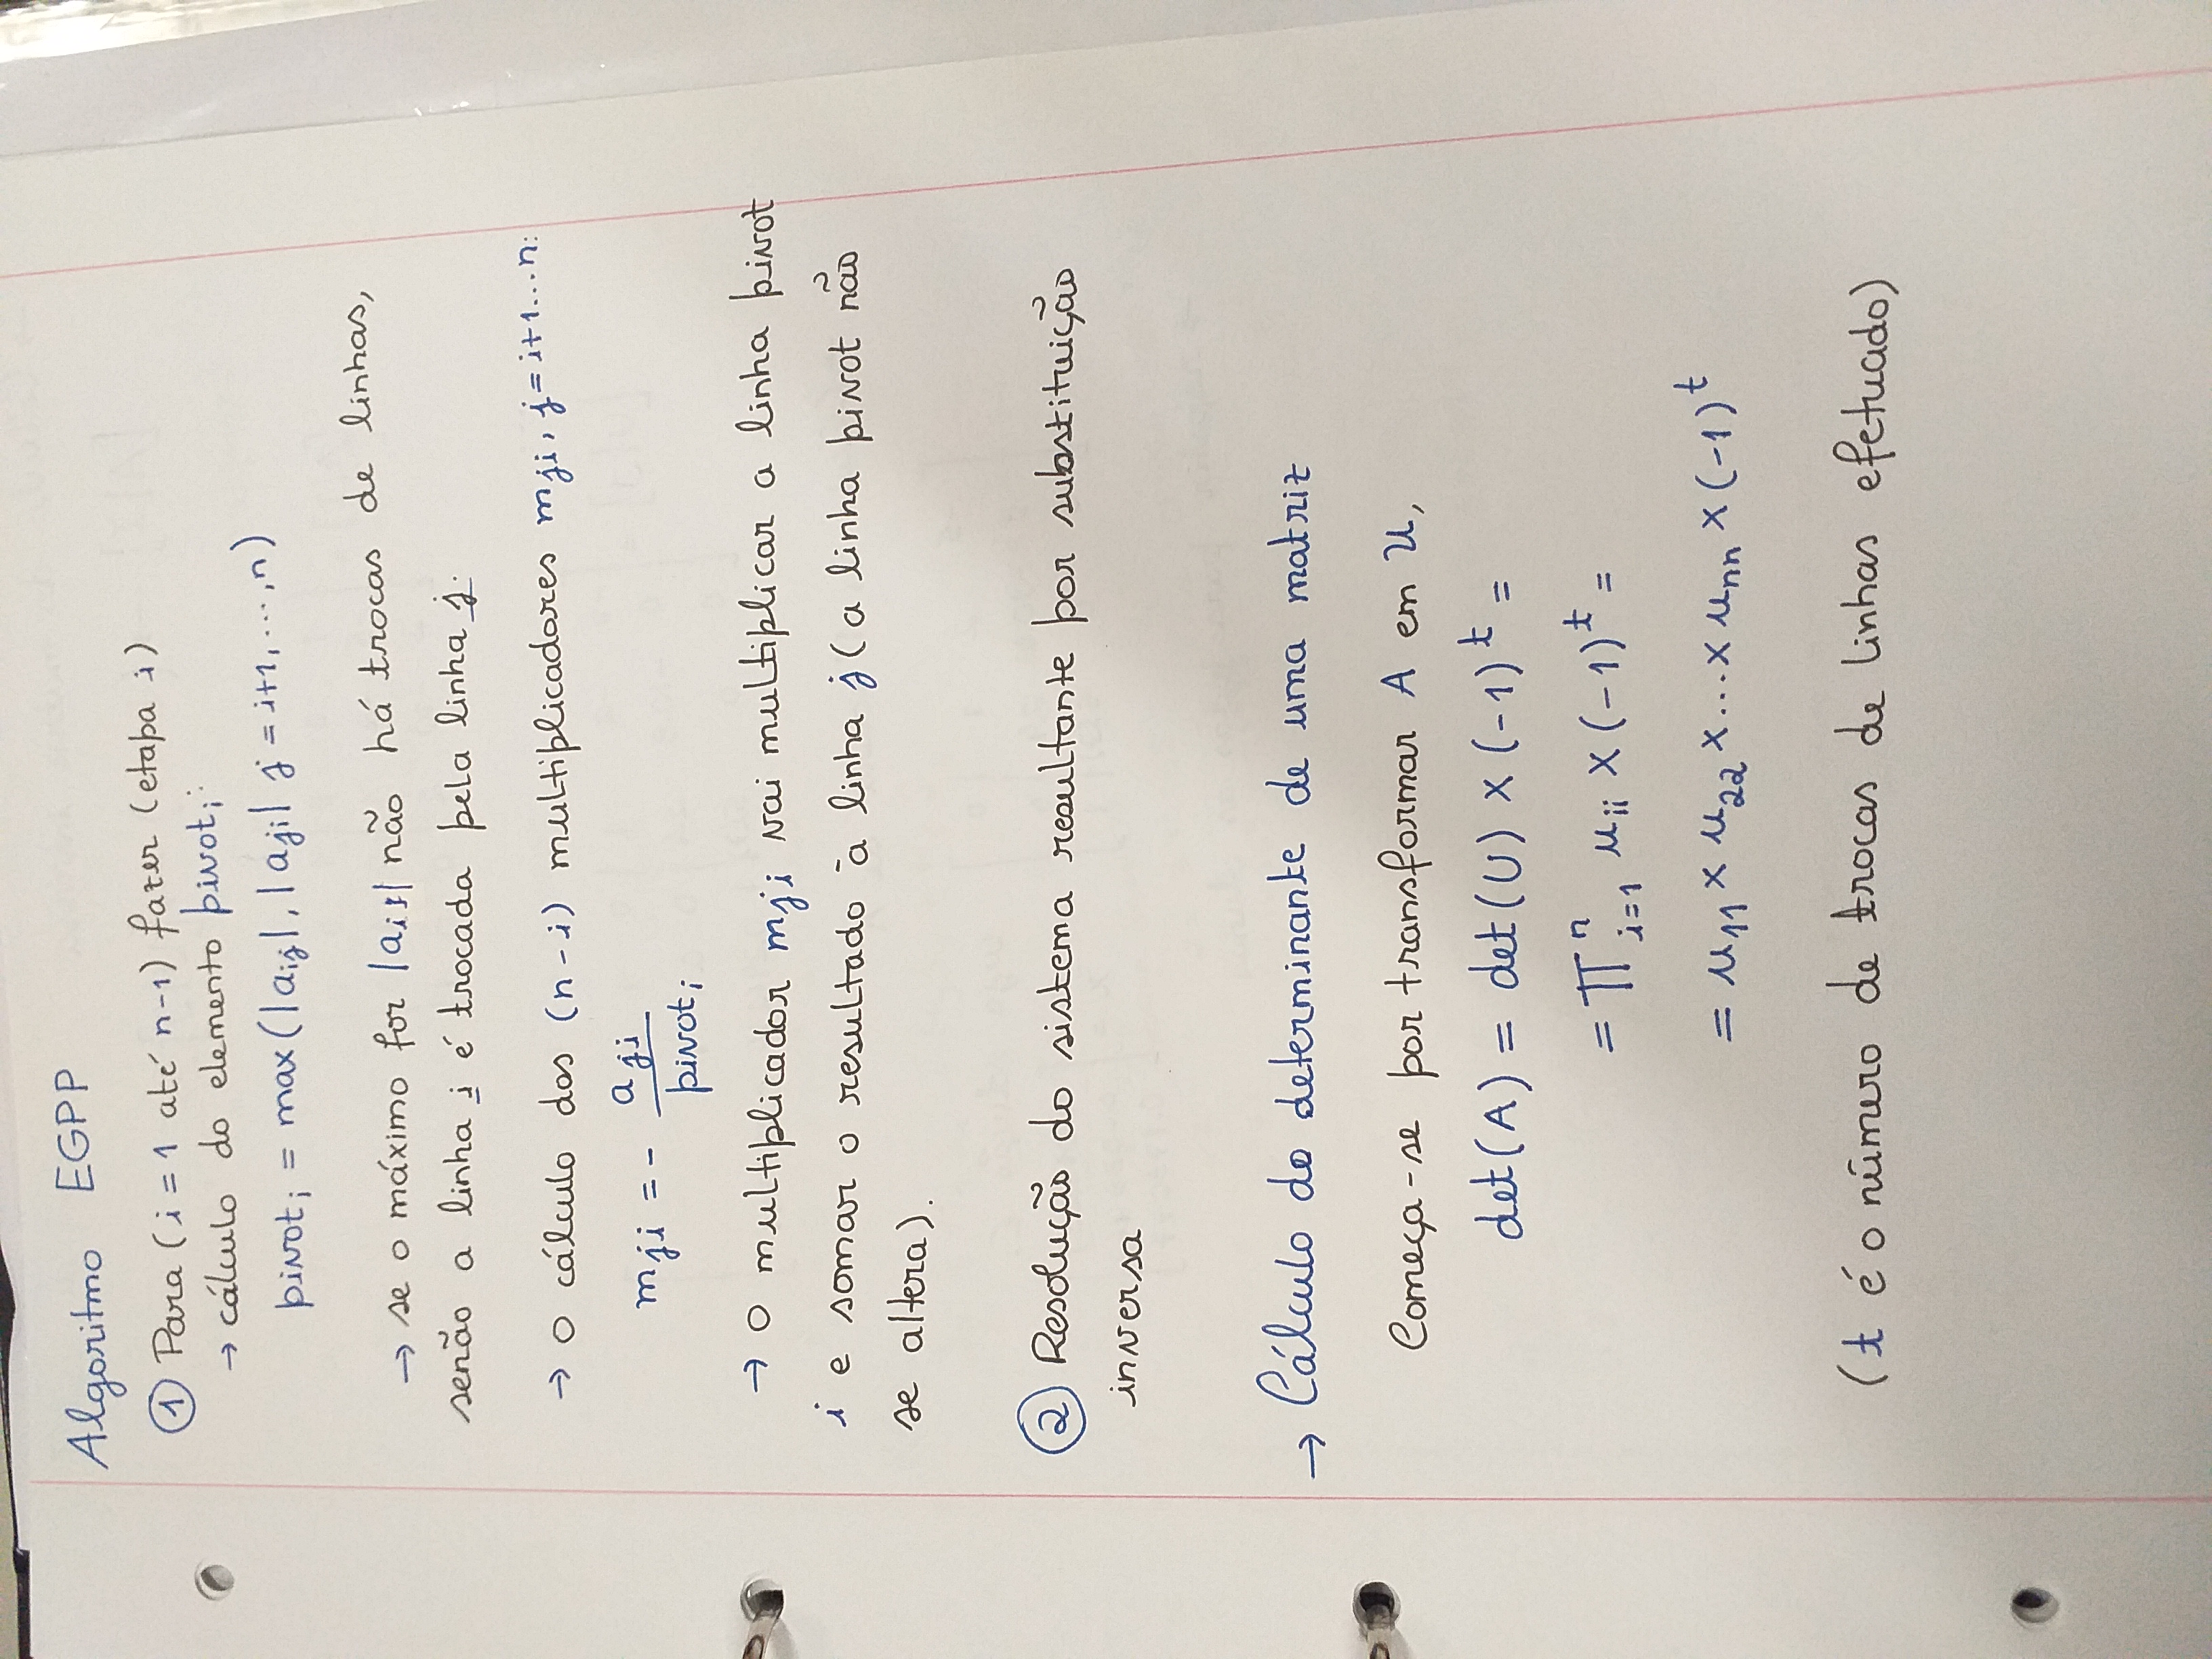 Algoritmo EGPP
① Para (i = 1 até n-1) fazer (etapa i)
→ cálculo do elemento pivot i:
pivot i = max(|aij|, |aji| j = i+1, ..., n)
→ se o máximo for |aij| não há trocas de linhas,
senão a linha i é trocada pela linha j.
→ O cálculo dos (n-i) multiplicadores mji, j=i+1...n:
mji = - aji / pivot i
→ O multiplicador mji vai multiplicar a linha pivot
i e somar o resultado à linha j (a linha pivot não
se altera).
② Resolução do sistema resultante por substituição
inversa
→ Cálculo do determinante de uma matriz
Começa-se por transformar A em U,
det(A) = det(U) × (-1)^t =
= ∏^n_{i=1} u_ii × (-1)^t =
= u_11 × u_22 × ... × u_nn × (-1)^t
(t é o número de trocas de linhas efetuado)